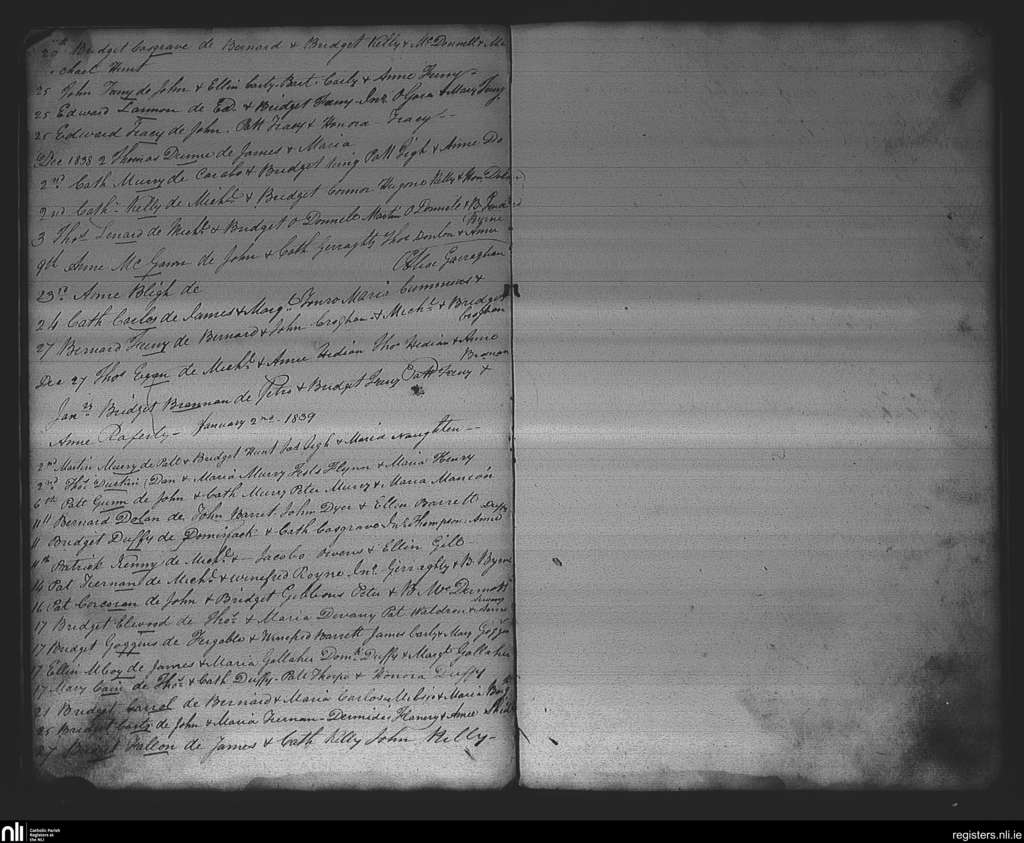 20th Bridget Cosgrave de Bernard & Bridget Kelly & McDonnell & Mi
chael Hunt
25 John Feeny de John & Ellin Carly Bart. Carly & Anne Feeny
25 Edward Lannon de Ed. & Bridget Feeny Jno. O Gara & Mary Feeny
25 Edward Tracy de John. Patt Tracy & Honora Tracy
Dec 1838 2 Thomas Dunne de James & Maria
2nd Cath Murry de Jacobo & Bridget King Patt Ligh & Anne Do
2nd Cath. Kelly de Michl. & Bridget Connor Kelly & Dolan
3 Thos Lenard de Michl. & Bridget O Donnele Martin O Donnele & B.
9th Anne Mc Gawn de John & Cath Gerraghty Thos Donlon & Anne
Byrne
Elise Garraghan
23rd Anne Bligh de
24 Cath Carlos de James & Margt. Maria Cummins &
27 Bernard Feeny de Bernard & John Croghan & Michl. & Bridget
Croghan
Dec 27 Thos Egan de Michl. & Anne Hedian Thos Hedian & Anne
Brenan
Jan Bridget Brannan de Petro & Bridget Feeny Patt Feeny &
Anne Raferty - January 2nd 1839
2nd Martin Murry de Patt & Bridget Hunt Pat Ligh & Maria Naughten
2nd Thos Durkin Dan & Maria Murry Flynn & Maria Henry
6th Patt Gunn de John & Cath Murry Peter Murry & Maria
11th Bernard Dolan de John Barret John Dyer & Ellen Barrett
11 Bridget Duffy de & Cath Cosgrave Jno. Thompson Anne
Duffy
11th Patrick Kenny de Michl. & - Jacobo & Ellin Gill
14 Pat Tiernan de Michl. & Winefred Royne Jno. Gerraghty & B. Byrne
16 Pat Corcoran de John & Bridget Gibbons Peter & B. McDermott
17 Bridget Elwood de Thos. & Maria Devany Pat Waldron & Anne
17 Bridget Goggins de Fergable & Winefred Barrett James Carly & Mary Goggin
17 Ellin McCoy de James & Maria Gallaher Domk. Duffy & Margt. Gallaher
17 Mary Cain de Thos. & Cath Duffy Patt Thorpe & Honora Duffy
21 Bridget Carrol de Bernard & Maria Carlos & Maria
25 Bridget Carty de John & Maria Tiernan - Dermidis Flanery & Anne
27 Fallon de James & Cath Kelly John Kelly -
nli
Catholic Parish
Registers at
the NLI
registers.nli.ie